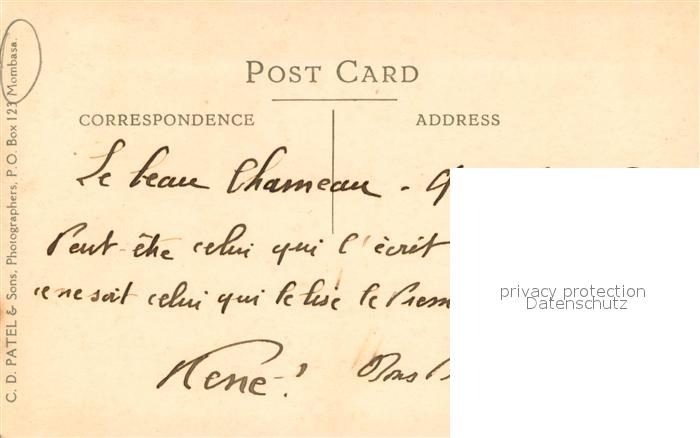 POST CARD
CORRESPONDENCE
ADDRESS
Le beau Chameau -
Peut-être celui qui l'écrit
ce ne soit celui qui le lise le Prem
René!
Bons
privacy protection
Datenschutz
C. D. PATEL & Sons, Photographers, P.O. Box 123 Mombasa.